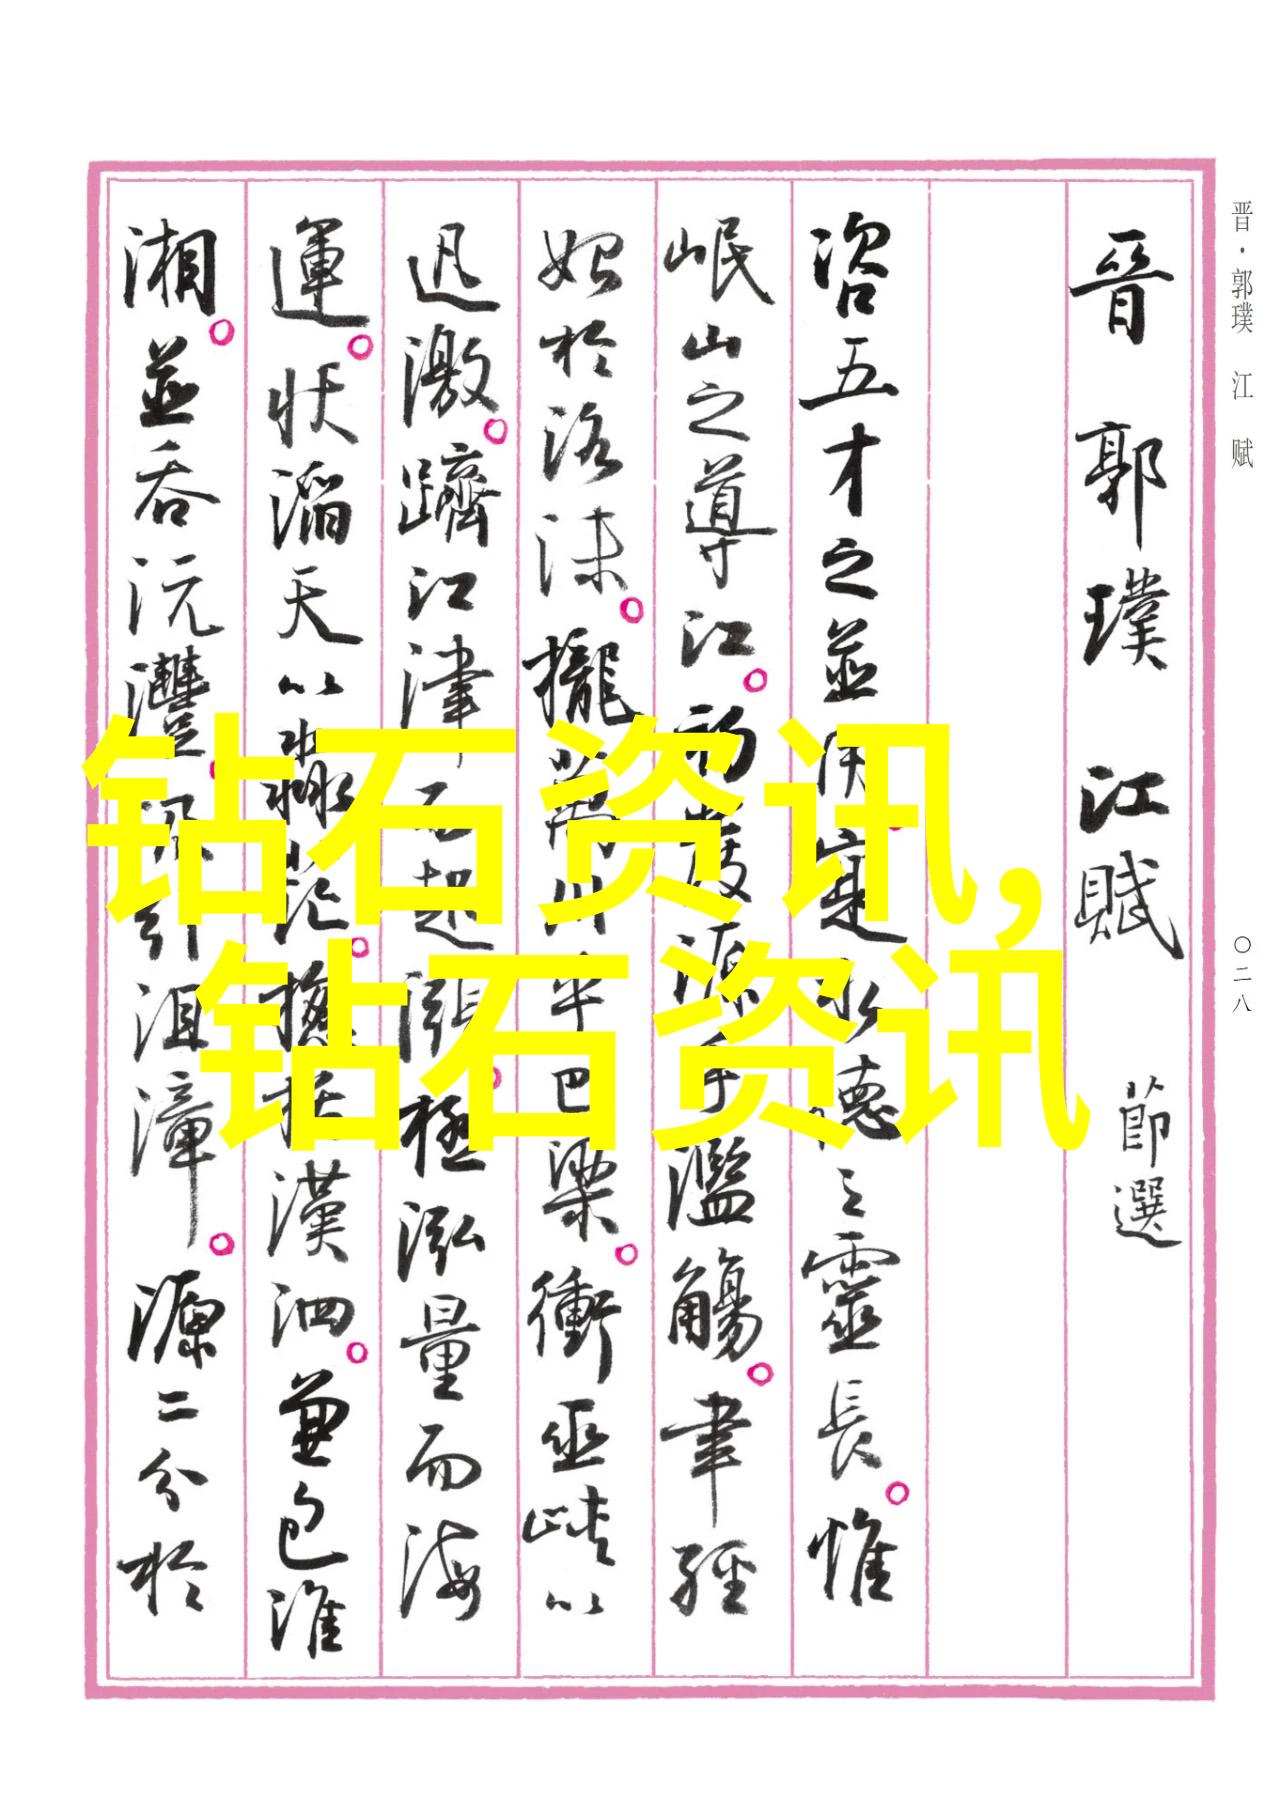 晋·郭璞 江 赋
〇二八
晉 郭 璞 江 賦 節選
咨五才之並用寔水德之靈長惟
岷山之導江初發源乎濫觴聿經
始於洛沬攏萬川乎巴梁衝巫峽以
迅激躋江津而起漲極泓量而海
運狀滔天以淼茫摠括漢泗兼包淮
湘並吞沅澧汲引沮漳源二分於
钻石资讯,
钻石资讯